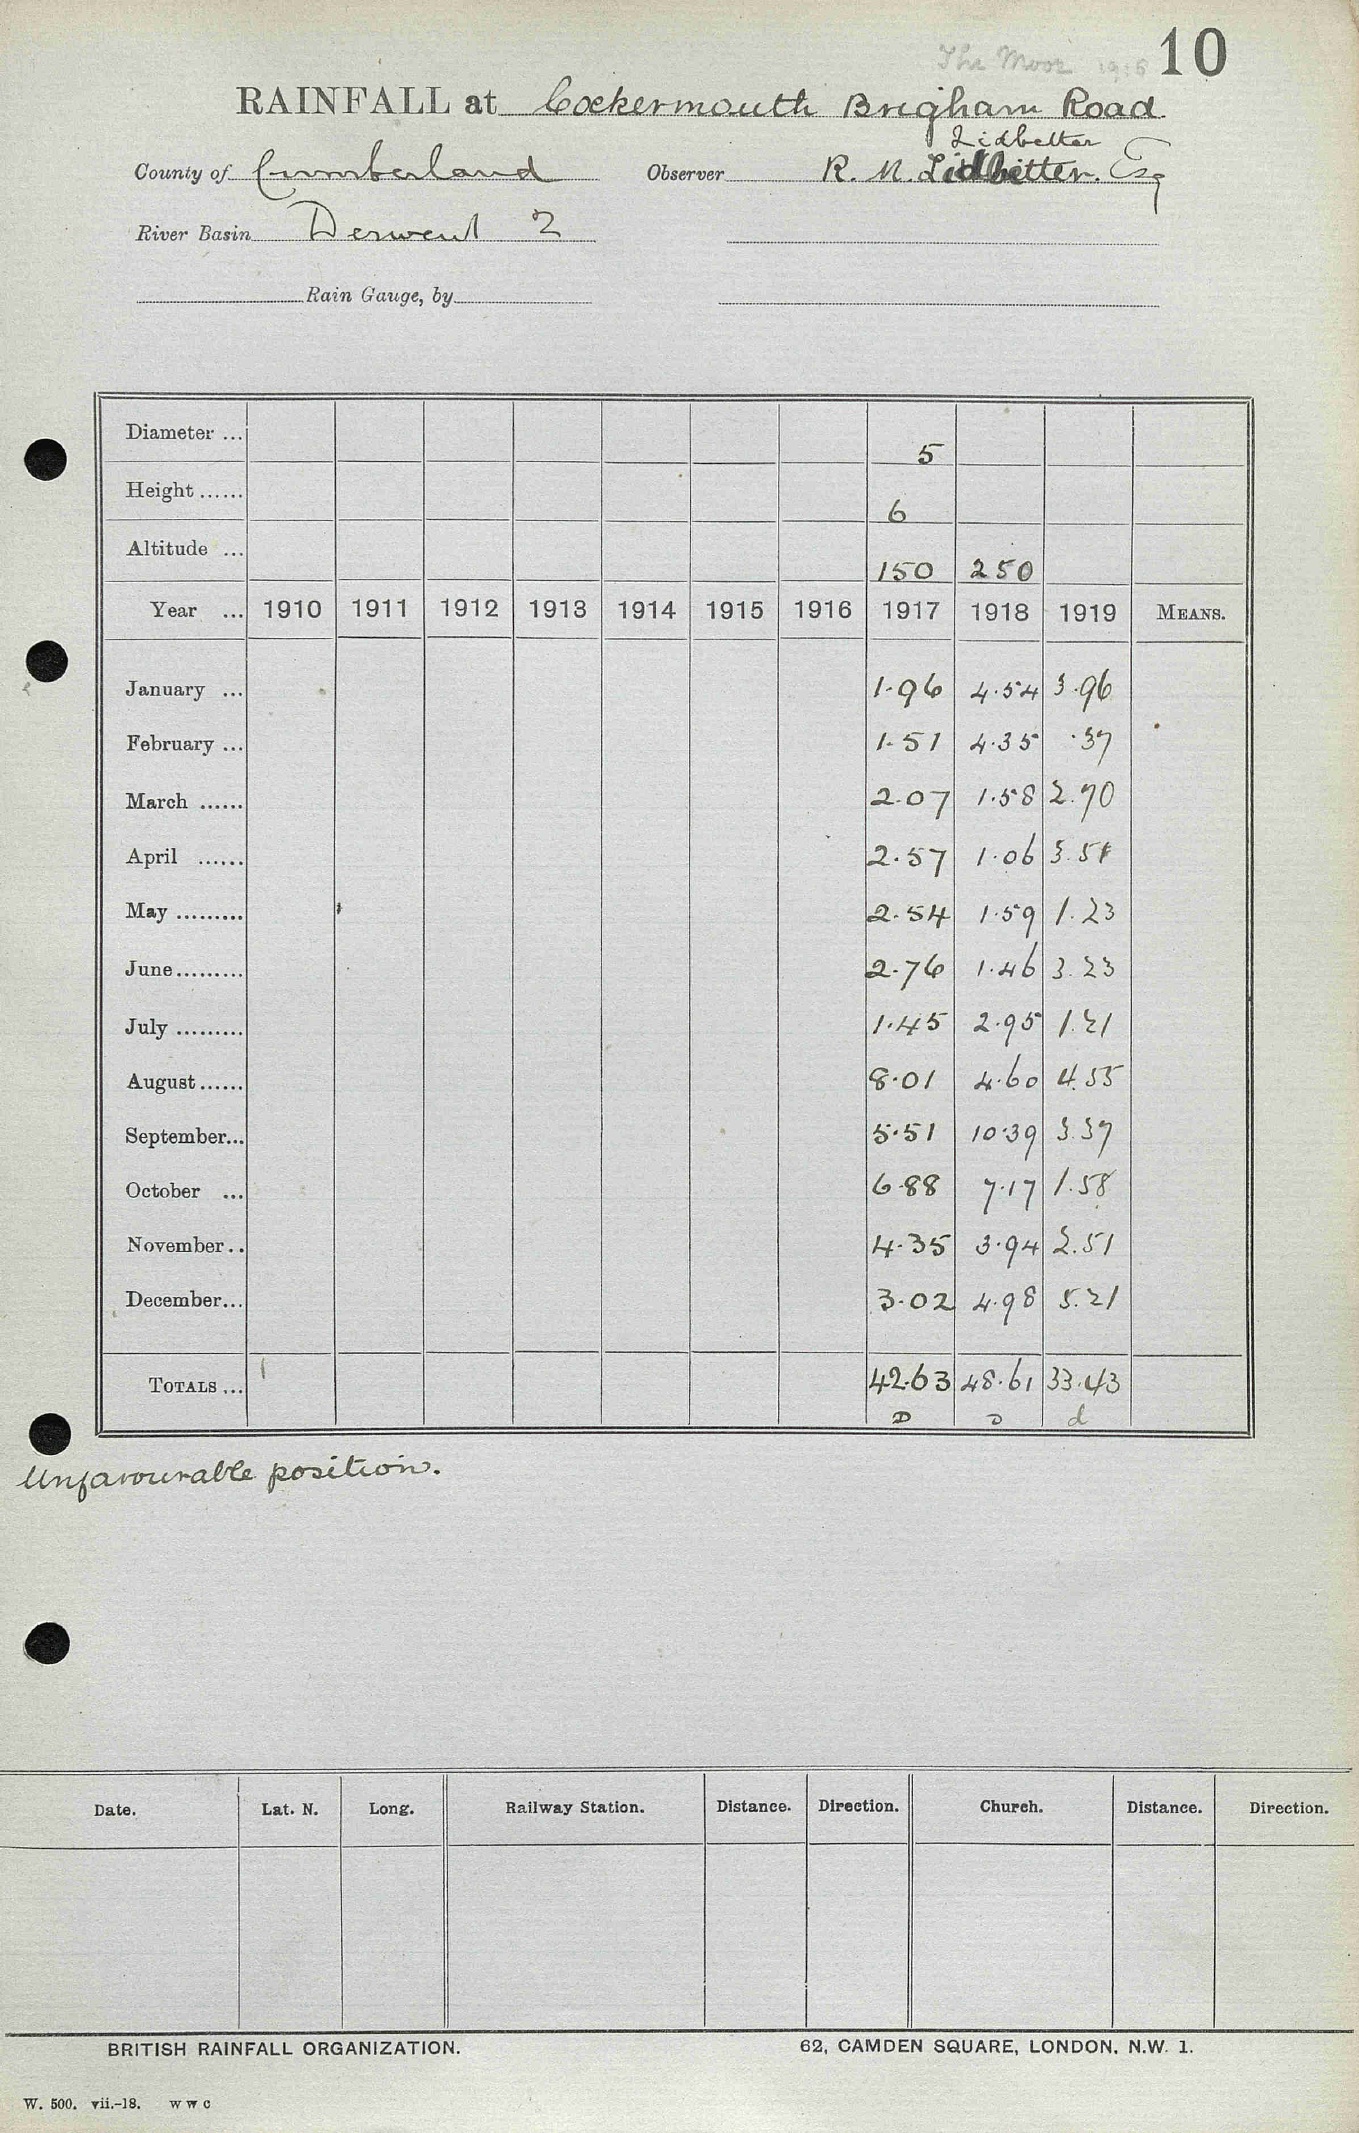 The Moor 10
RAINFALL at Cockermouth Brigham Road
Lidbetter
County of Cumberland Observer R. M. Lidbetter. Esq
River Basin Derwent 2
Rain Gauge, by
Diameter ... 5
Height ...... 6
Altitude ... 150 250
Year ... 1910 1911 1912 1913 1914 1915 1916 1917 1918 1919 MEANS.
January ... 1.96 4.54 3.96
February ... 1.51 4.35 .37
March ...... 2.07 1.58 2.70
April ...... 2.57 1.06 3.51
May ......... 2.54 1.59 1.23
June ......... 2.76 1.46 3.23
July ......... 1.45 2.95 1.21
August ...... 8.01 4.60 4.55
September... 5.51 10.39 3.37
October ... 6.88 7.17 1.58
November .. 4.35 3.94 2.51
December... 3.02 4.98 5.21
TOTALS ... 42.63 48.61 33.43
D D d
Unfavourable position.
Date. Lat. N. Long. Railway Station. Distance. Direction. Church. Distance. Direction.
BRITISH RAINFALL ORGANIZATION. 62, CAMDEN SQUARE, LONDON, N.W. 1.
W. 500. vii.-18. W W C